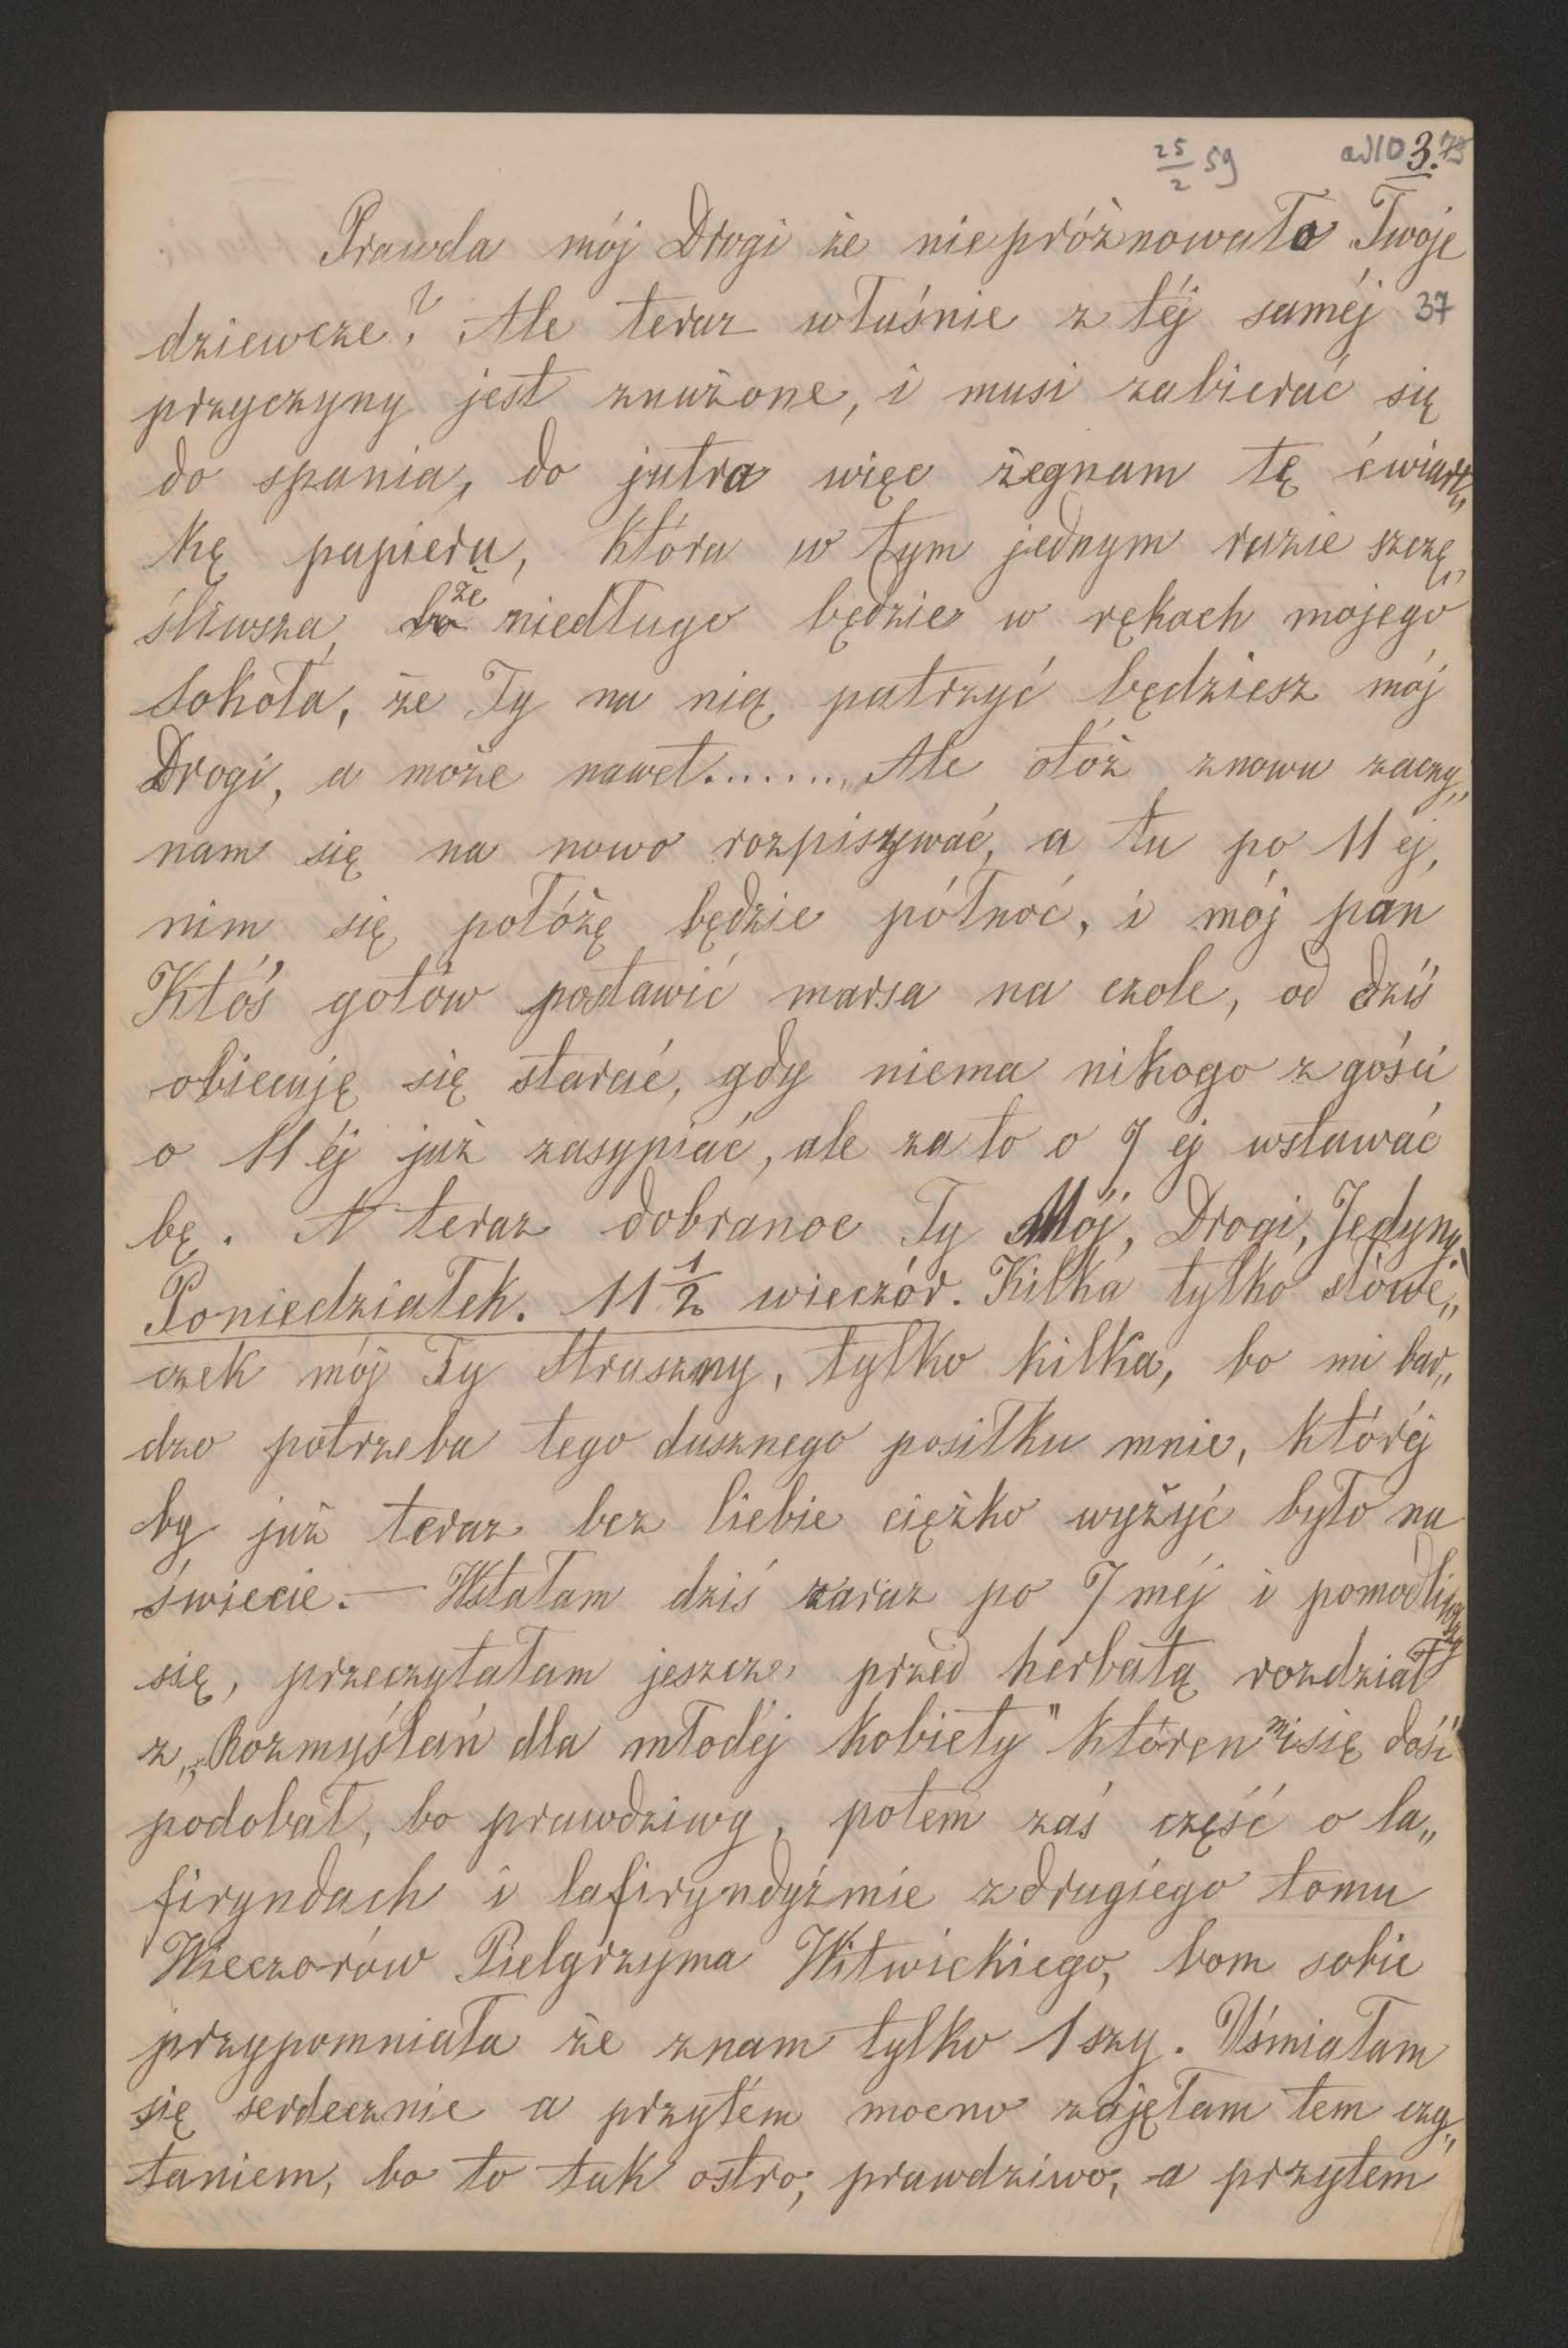 25/2 59 ad10 3.
Prawda mój Drogi że niepróżnowało Twoje
dziewcze? Ale teraz właśnie z téj saméj 37
przyczyny jest znużone, i musi zabierać się
do spania, do jutra więc żegnam tę ćwiart„
kę papieru, która w tym jednym razie szczę„
śliwsza, bo że niedługo będzie w rękach mojego
Sokoła, że Ty na nią patrzyć będziesz mój
Drogi, a może nawet........ Ale otóż znowu zaczy„
nam się na nowo rozpisywać, a tu po 11 éj,
nim się położę będzie północ, i mój pan
Ktoś gotów postawić marsa na czole, od dziś
obiecuję się starać, gdy niema nikogo z gości
o 11 éj już zasypiać, ale za to o 7 éj wstawać
bę. A teraz dobranoc Ty Mój, Drogi, Jedyny.
Poniedziałek. 11 1/2 wieczór. Kilka tylko słówe„
czek mój Ty Straszny, tylko kilka, bo mi bar„
dzo potrzeba tego dusznego posiłku mnie, któréj
by już teraz bez Ciebie ciężko wyżyć było na
świecie. — Wstałam dziś zaraz po 7 méj i pomodliwszy
się, przeczytałam jeszcze przed herbatą rozdział
z „Rozmyślań dla młodéj kobiety" któren mi się dość
podobał, bo prawdziwy, potem zaś część o la„
firyndach i lafiryndyźmie z drugiego tomu
Wieczorów Pielgrzyma Witwickiego, bom sobie
przypomniała że znam tylko 1 szy. Uśmiałam
się serdecznie a przytém mocno zajęłam tem czy„
taniem, bo to tak ostro, prawdziwo, a przytem